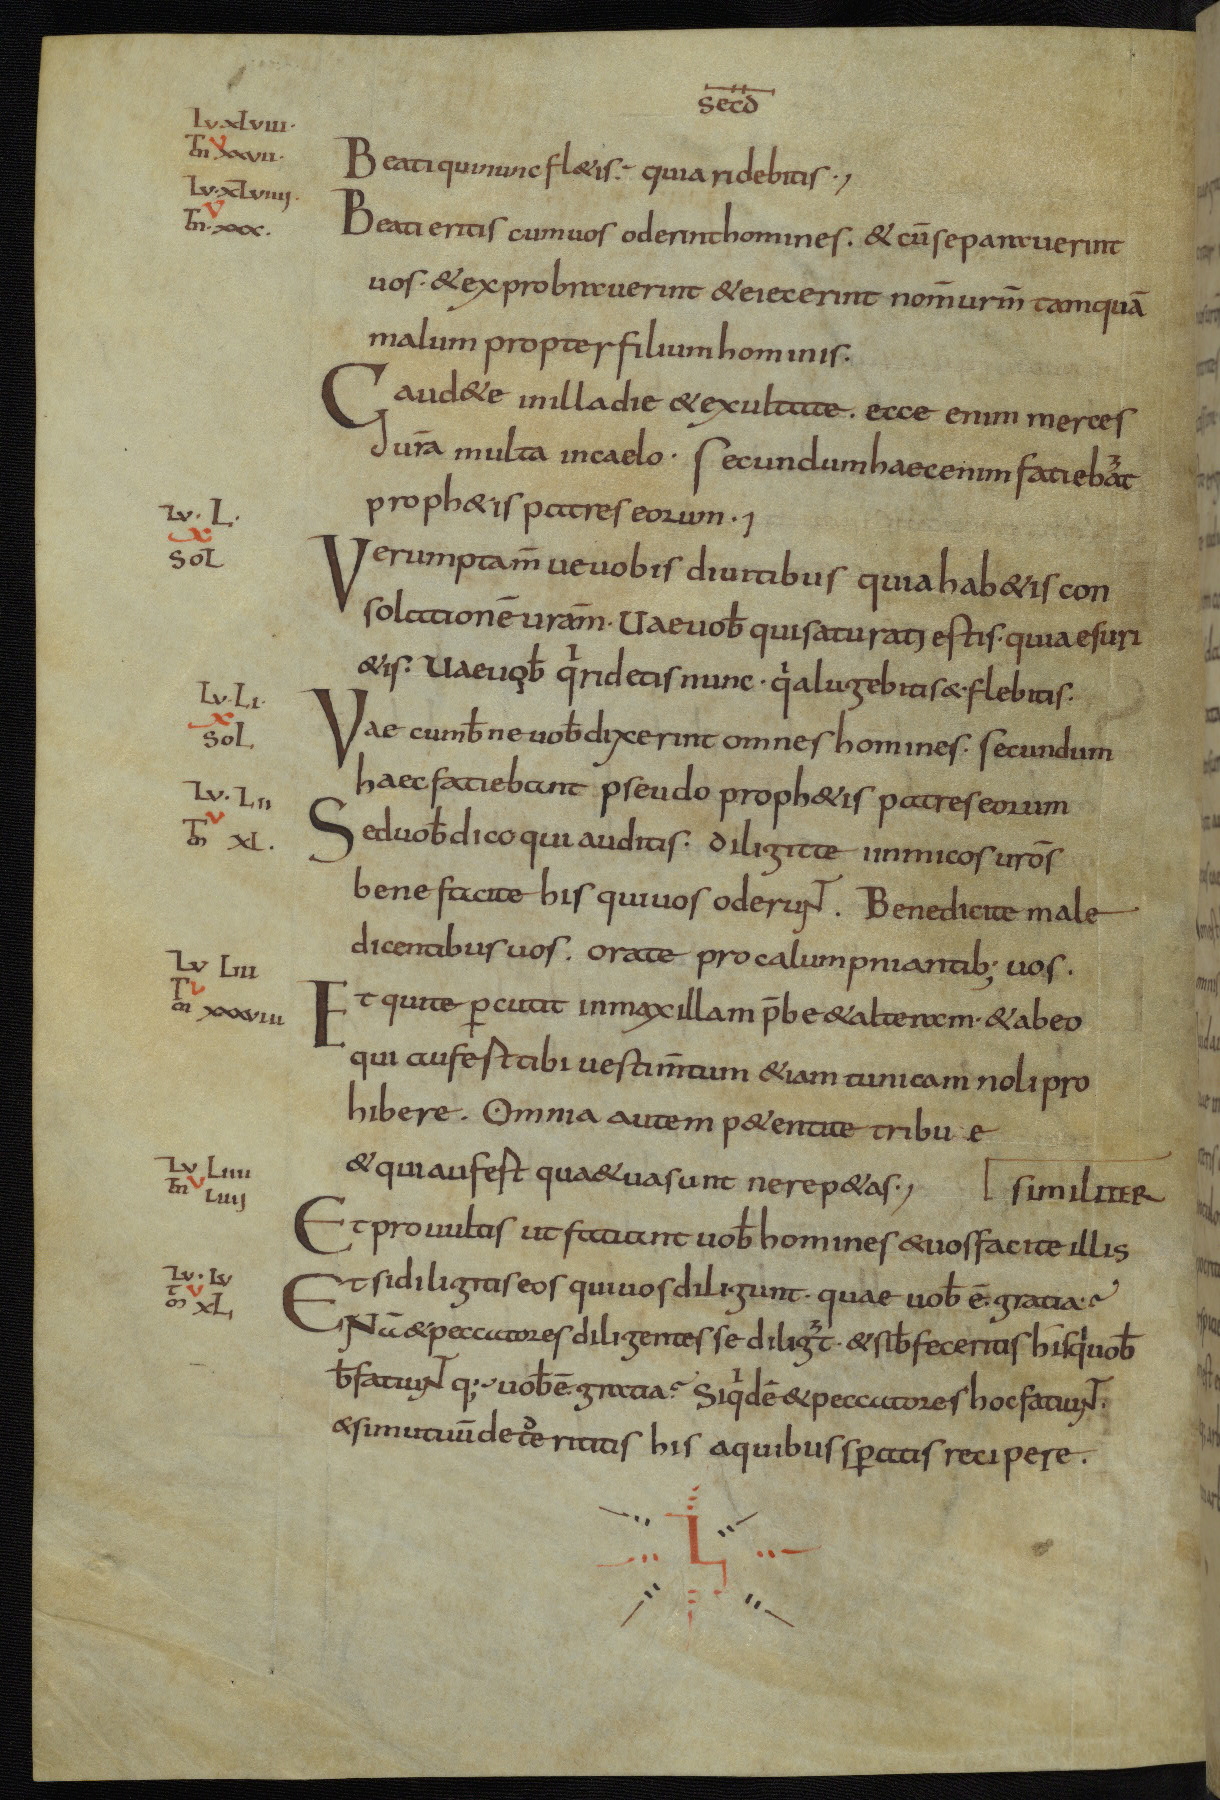 secd
Lv. xLviii.
m v xxvii.
Beati qui nunc fl&is. quia ridebitis.,
Lv. xLviiij.
v
m. xxx.
Beati eritis cum uos oderint homines. & cū separauerint
uos. & exprobrauerint & eiecerint nom̄ urm̄ tamquā
malum propter filium hominis.
Gaud&e in illa die & exultate. ecce enim merces
ura̅ multa in caelo. Secundum haec enim faciebāt
proph&is patres eorum.,
Lv. L.
x
soL
Verumptam̄ ue uobis diuitibus quia hab&is con
solationē uram̄. Uae uob̄ qui saturati estis. quia esuri
&is. Uae uob̄ qi ridetis nunc. qia lugebitis & flebitis.
Lv. Li.
x
soL
Vae cum b̄ne uob̄ dixerint omnes homines. secundum
haec faciebant pseudo proph&is patres eorum
Lv. Lii
v
m xL.
Sed uob̄ dico qui auditis. diligite inimicos uros̄
bene facite his qui uos oderuNT. Benedicite male
dicentibus uos. orate pro calumpniantib; uos.
Lv Liii
v
m xxxviii
Et qui te p̄cutit in maxillam p̄be & alteram. & ab eo
qui aufest tibi uestim̄tum &iam tunicam noli pro
hibere. Omnia autem p&ente te tribue
& qui aufest quae & ua sunt ne rep&as.,
similiter
Lv Liiii
m v Liiij
Et pro uultis ut faciant uob̄ homines & uos facite illis
Lv. Lv
m v xL
Et si diligitis eos qui uos diligunt. quae uob̄ ē. gratia.
Nā & peccatores diligentes se diligt̄. & si b̄ feceritis his qi uob̄
b̄ faciuNT q; uob̄ ē. gratia. Siqidē & peccatores hoc faciuNT.
& si mutuū dederitis his a quibus sp̄atis recipere.
L